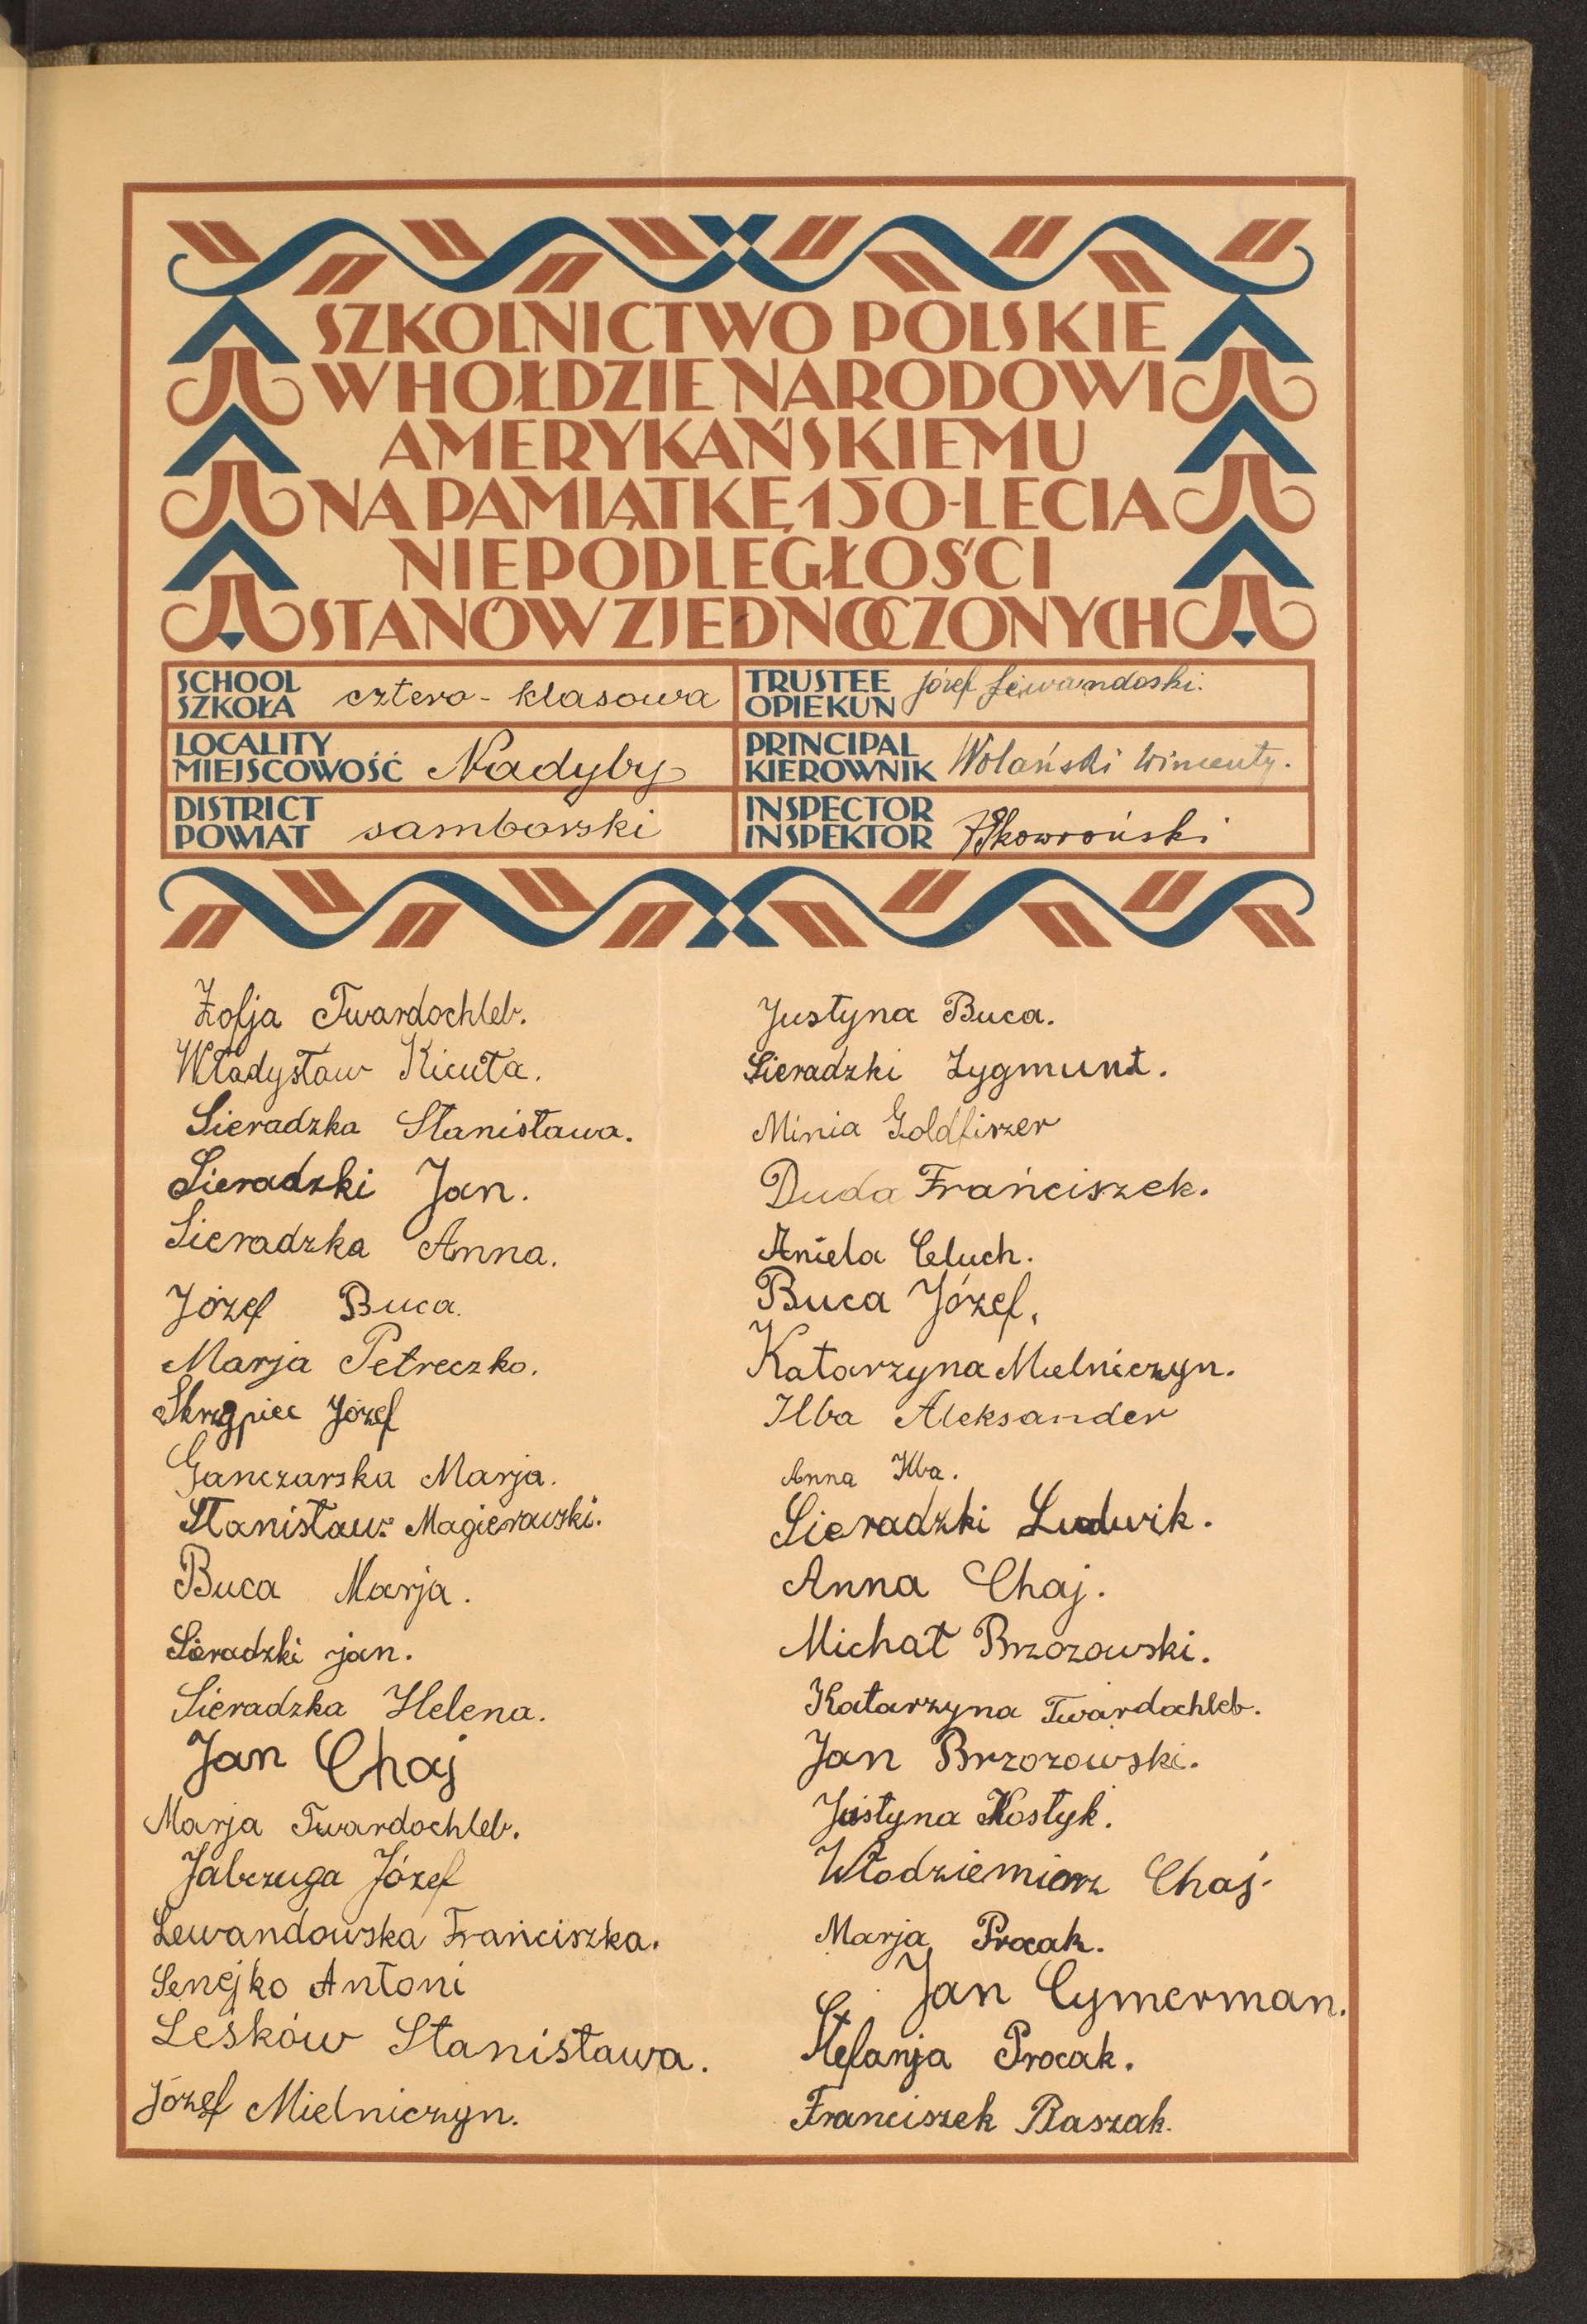 SZKOLNICTWO POLSKIE
W HOŁDZIE NARODOWI
AMERYKAŃSKIEMU
NA PAMIĄTKĘ 150-LECIA
NIEPODLEGŁOŚCI
STANÓW ZJEDNOCZONYCH
SCHOOL
SZKOŁA cztero-klasowa
TRUSTEE
OPIEKUN Józef Lewandoski.
LOCALITY
MIEJSCOWOŚĆ Nadyby
PRINCIPAL
KIEROWNIK Wolański Wincenty.
DISTRICT
POWIAT samborski
INSPECTOR
INSPEKTOR Skowroński
Zofja Twardochleb.
Władysław Kicuła.
Sieradzka Stanisława.
Sieradzki Jan.
Sieradzka Anna.
Józef Buca.
Marja Petreczko.
Skrzypiec Józef
Ganczarska Marja.
Stanisław Magierowski.
Buca Marja.
Sieradzki jan.
Sieradzka Helena.
Jan Chaj
Marja Twardochleb.
Jabczuga Józef
Lewandowska Franciszka.
Senejko Antoni
Leśków Stanisława.
Józef Mielniczyn.
Justyna Buca.
Sieradzki Zygmunt.
Minia Goldfiszer
Duda Frańciszek.
Aniela Celuch.
Buca Józef.
Katarzyna Mielniczyn.
Ilba Aleksander
Anna Ilba.
Sieradzki Ludwik.
Anna Chaj.
Michał Brzozowski.
Katarzyna Twardochleb.
Jan Brzozowski.
Justyna Kostyk.
Włodziemierz Chaj.
Marja Procak.
Jan Cymerman.
Stefanja Procak.
Franciszek Baszak.